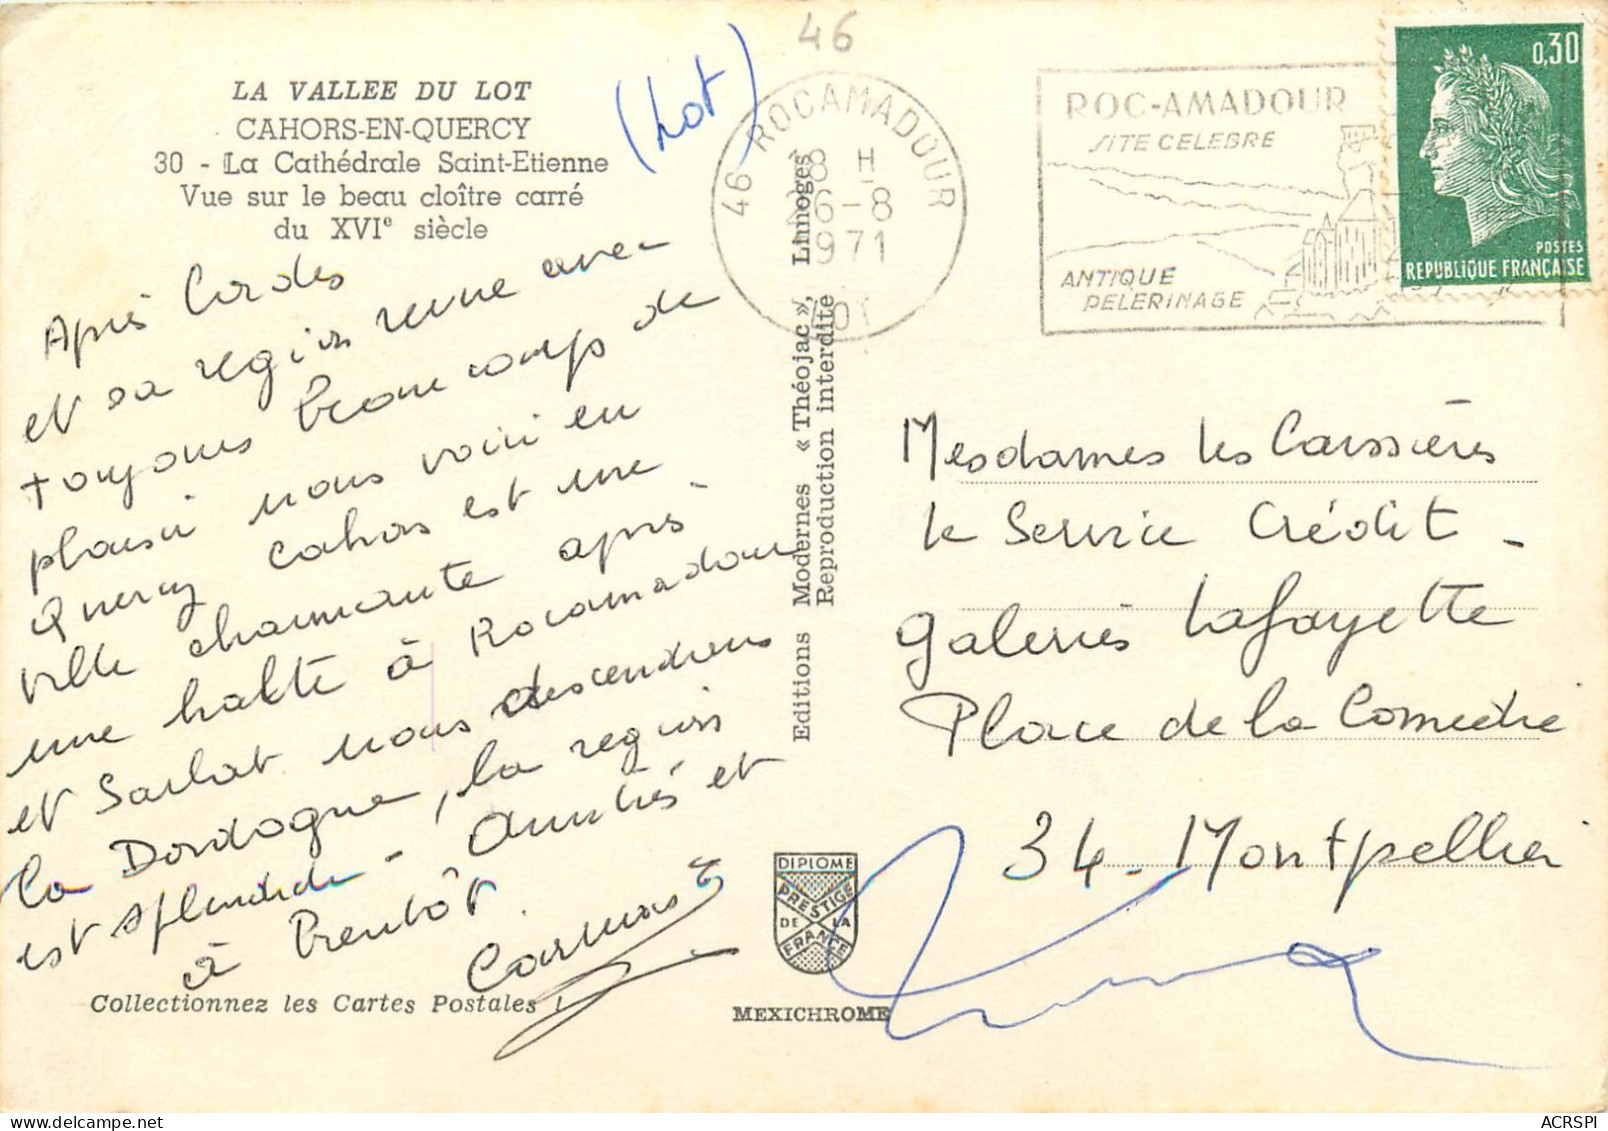 LA VALLEE DU LOT
CAHORS-EN-QUERCY
30 - La Cathédrale Saint-Etienne
Vue sur le beau cloître carré
du XVIe siècle
(Lot)
46
46 ROCAMADOUR
18 H
26-8
1971
LOT
ROC-AMADOUR
SITE CELEBRE
ANTIQUE
PELERINAGE
0,30
POSTES
REPUBLIQUE FRANÇAISE
Après Cordes
et sa region revue avec
toujours beaucoup de
plaisir nous voici en
Quercy Cahors est une
ville charmante après
une halte à Rocamadour
et Sarlat nous descendrons
la Dordogne, la region
est splendide - Amitiés et
à bientôt.
Collectionnez les Cartes Postales !
Editions Modernes « Théojac », Limoges
Reproduction interdite
Mesdames les Caissières
le Service Crédit -
Galeries Lafayette
Place de la Comedie
34 - Montpellier
DIPLOME
PRESTIGE
DE LA
FRANCE
MEXICHROME
ACRSPI